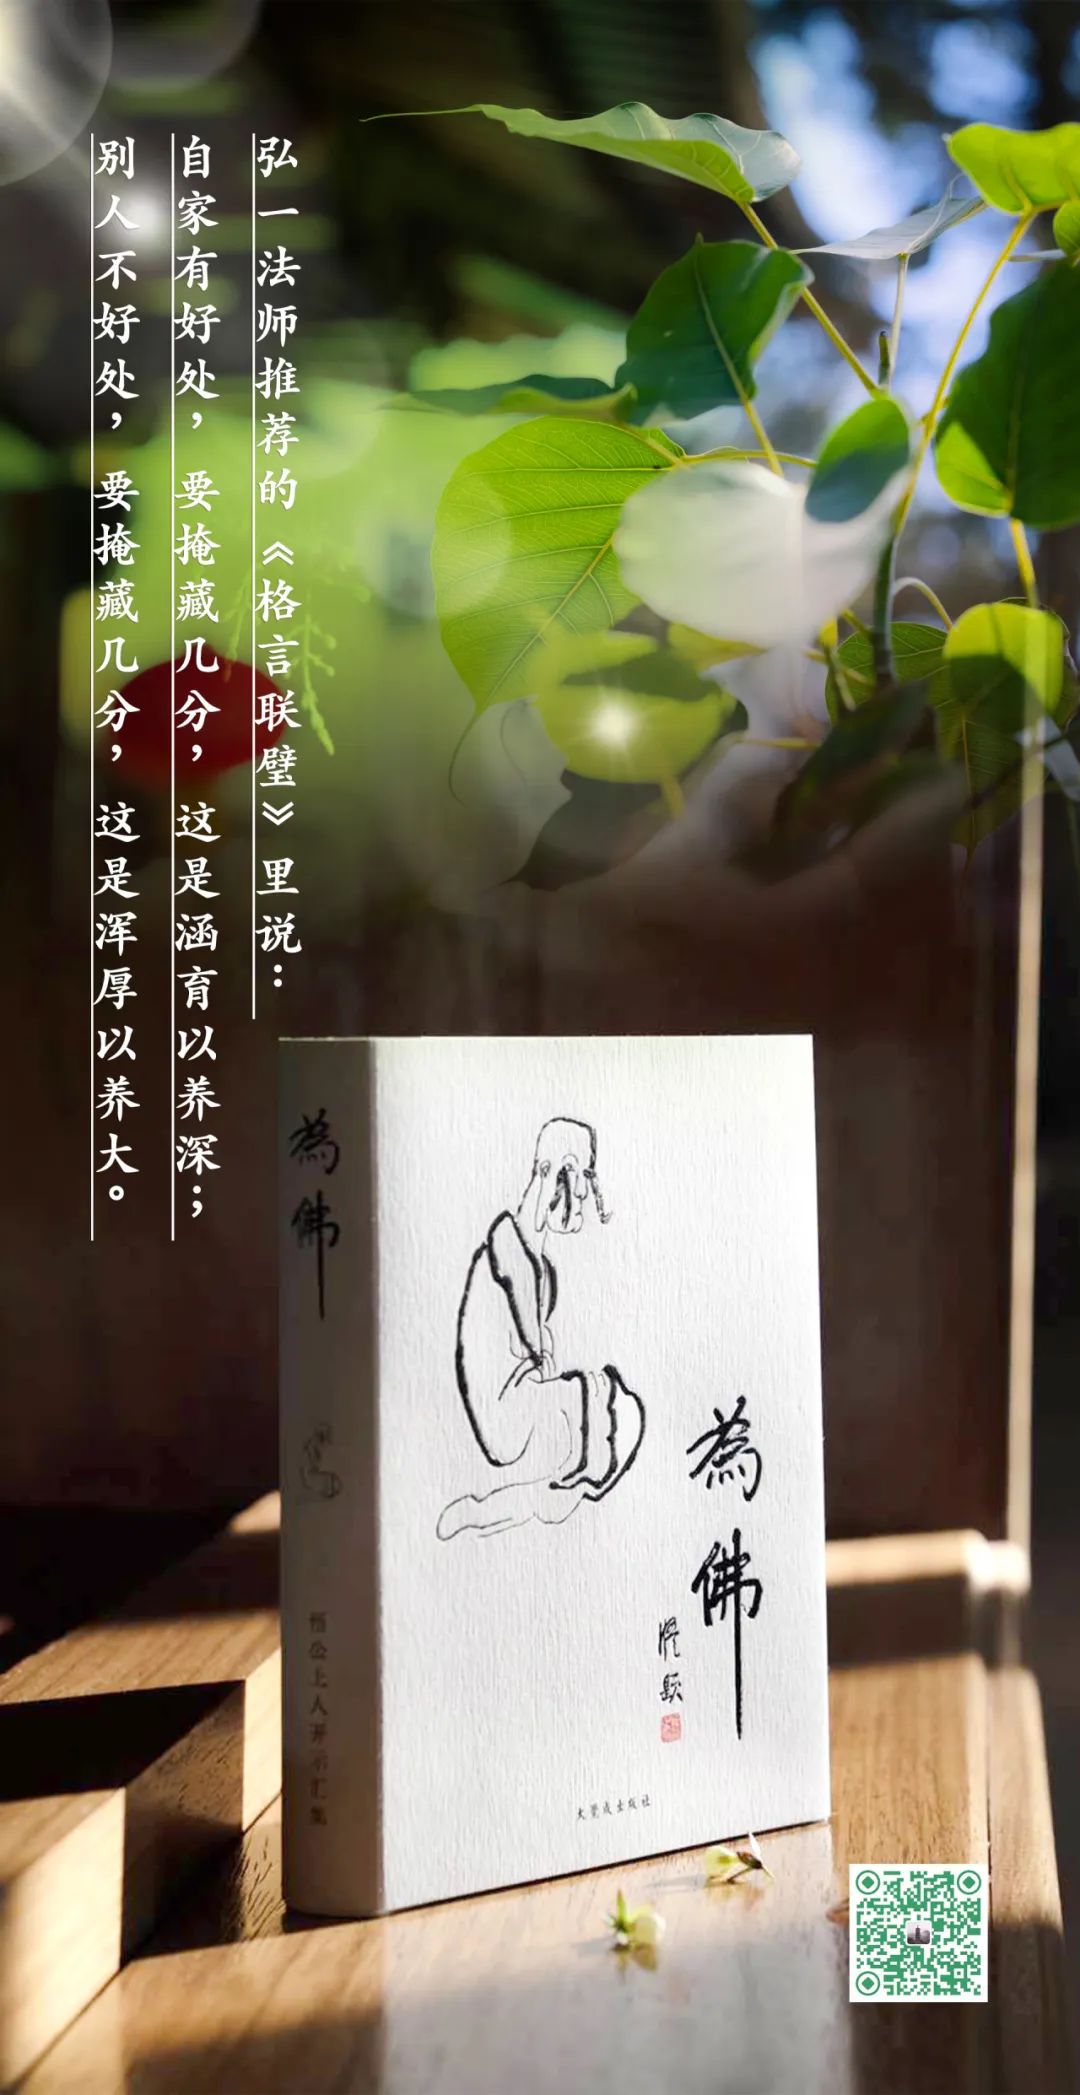 弘一法师推荐的《格言联璧》里说：
自家有好处，要掩藏几分，这是涵育以养深；
别人不好处，要掩藏几分，这是浑厚以养大。
為佛
悟公上人开示汇集
為佛
大覺成出版社